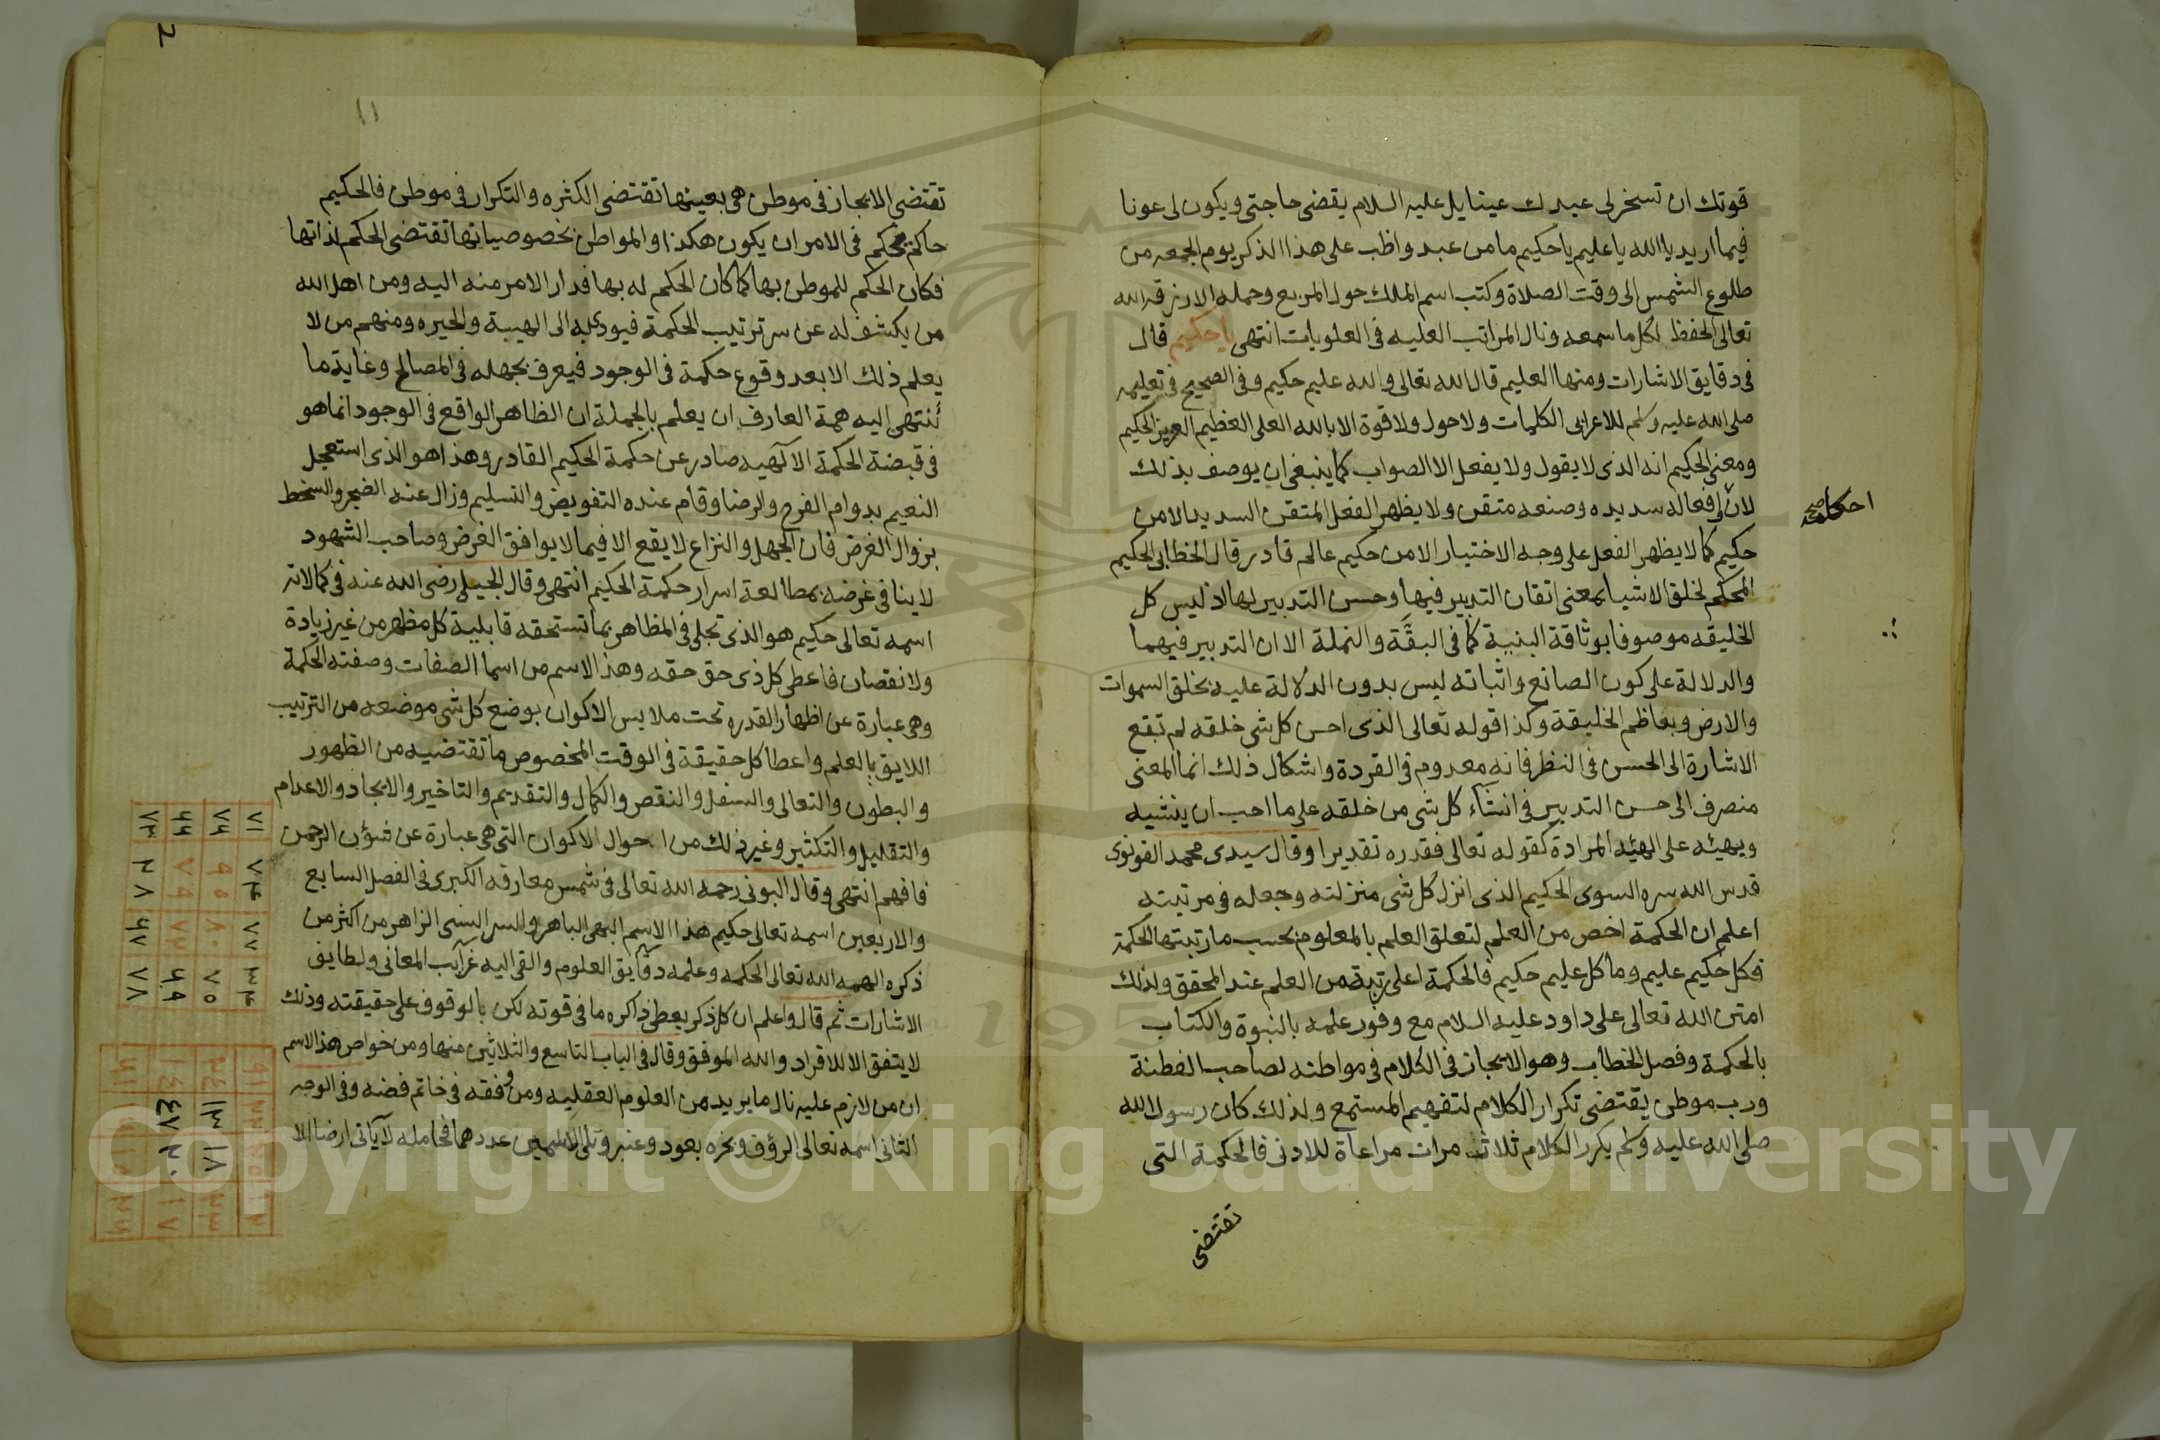 قوتك ان تسخرلى عبدك عينايل عليه السلام يقضى حاجتى ويكون لى عونا
فيما اريد يا الله يا عليم يا حكيم ما من عبد واظب على هذا الذكر يوم الجمعه من
طلوع الشمس الى وقت الصلاة وكتب اسم الملك حول المربع وحمله الا رزقه الله
تعالى الحفظ لكل ما سمعه ونال المراتب العليه فى العلويات انتهى يا حكيم قال
فى دقايق الاشارات ومنها العليم قال الله تعالى والله عليم حكيم وفى الصحيح فى تعليمه
صلى الله عليه وسلم للاعرابى الكلمات ولا حول ولا قوة الا بالله العلى العظيم العزيز الحكيم
ومعنى الحكيم انه الذى لا يقول ولا يفعل الا الصواب كما ينبغى ان يوصف بذلك
لان افعاله سديده وصنعه متقن ولا يظهر الفعل المتقن السديد الا من
حكيم كما لا يظهر الفعل على وجه الاختيار الا من حكيم عالم قادر قال الخطابى الحكيم
المحكم لخلق الاشيا بمعنى اتقان التدبير فيها وحسن التدبير لها اذ ليس كل
الخليقه موصوفا بوثاقة البنية كما فى البقَّة والنملة الا ان التدبير فيهما
والدلالة على كون الصانع واثباته ليس بدون الدلالة عليه بخلق السموات
والارض وبعاظم الخليقة وكذا قوله تعالى الذى احسن كل شى خلقه لم تبقع
الاشارة الى الحسن فى النظر فانه معدوم فى القردة واشكال ذلك انما المعنى
منصرف الى حسن التدبير فى انشاء كل شى من خلقه على ما احب ان ينشيه
ويهيئه على الهيئه المرادة كقوله تعالى فقدره تقديرا وقال سيدى محمد القونوى
قدس الله سره السوى الحكيم الذى انزل كل شى منزلته وجعله فى مرتبته
اعلم ان الحكمة اخص من العلم لتعلق العلم بالمعلوم بحسب ما رتبتها الحكمة
فكل حكيم عليم وما كل عليم حكيم فالحكمة اعلى رتبة من العلم عند المحقق ولذلك
امتن الله تعالى على داود عليه السلام مع وفور علمه بالنبوة والكتاب
بالحكمة وفصل الخطاب وهو الايجاز فى الكلام فى مواطنه لصاحب الفطنة
ورب موطن يقتضى تكرار الكلام لتفهيم المستمع ولذلك كان رسول الله
صلى الله عليه وسلم يكرر الكلام ثلاث مرات مراعاة للادنى فالحكمة التى
تقتضى
احكامه صح
2
11
تقتضى الايجاز فى موطن هى بعينها تقتضى الكثره والتكرار فى موطن فالحكيم
حاكم محكم فى الامر ان يكون هكذا والمواطن بخصوصياتها تقتضى الحكم لذاتها
فكان الحكم للموطن بها كما كان الحكم له بها فدار الامر منه اليه ومن اهل الله
من يكشف له عن سر ترتيب الحكمة فيوديه الى الهيبة والحيره ومنهم من لا
يعلم ذلك الا بعد وقوع حكمة فى الوجود فيعرف بجهله فى المصالح وغاية ما
تنتهى اليه همة العارف ان يعلم بالجملة ان الظاهر الواقع فى الوجود انما هو
فى قبضة الحكمة الالهيه صادر عن حكمة الحكيم القادر وهذا هو الذى استعجل
النعيم بدوام الفرح والرضا وقام عنده التفويض والتسليم وزال عنه الضجر والسخط
بزوال الغرض فان الجهل والنزاع لا يقع الا فيما لا يوافق الغرض وصاحب الشهود
لا ينافى غرضه بمطالعة اسرار حكمة الحكيم انتهى وقال الجيلى رضى الله عنه فى كمالاته
اسمه تعالى حكيم هو الذى تجلى فى المظاهر بما تستحقه قابلية كل مظهر من غير زيادة
ولا نقصان فاعطى كل ذى حق حقه وهذا الاسم من اسما الصفات وصفته الحكمة
وهى عبارة عن اظهار القدره تحت ملابس الاكوان بوضع كل شى موضعه من الترتيب
اللايق بالعلم واعطا كل حقيقة فى الوقت المخصوص ما تقتضيه من الظهور
والبطون والتعالى والسفل والنقص والكمال والتقديم والتاخير والايجاد والاعدام
والتقليل والتكثير وغير ذلك من احوال الاكوان التى هى عبارة عن شؤن الرحمن
فافهم انتهى وقال البونى رحمه الله تعالى فى شمس معارفه الكبرى فى الفصل السابع
والاربعين اسمه تعالى حكيم هذا الاسم البهى الباهر والسر السنى الزاهر من اكثر من
ذكره الهمه الله تعالى الحكمه وعلمه دقايق العلوم والقى اليه غرآيب المعانى ولطايف
الاشارات ثم قال واعلم ان كل ذكر يعطى ذاكره ما فى قوته لكن بالوقوف على حقيقته وذلك
لا يتفق الا للافراد والله الموفق وقال فى الباب التاسع والثلاثين منها ومن خواص هذا الاسم
ان من لازم عليه نال ما يريد من العلوم العقليه ومن وفقه فى خاتم فضه وفى الوجه
الثانى اسمه تعالى الرؤف وبخره بعود وعنبر وتلى الاسمين عددهما فحامله لا ياتى ارضا الا